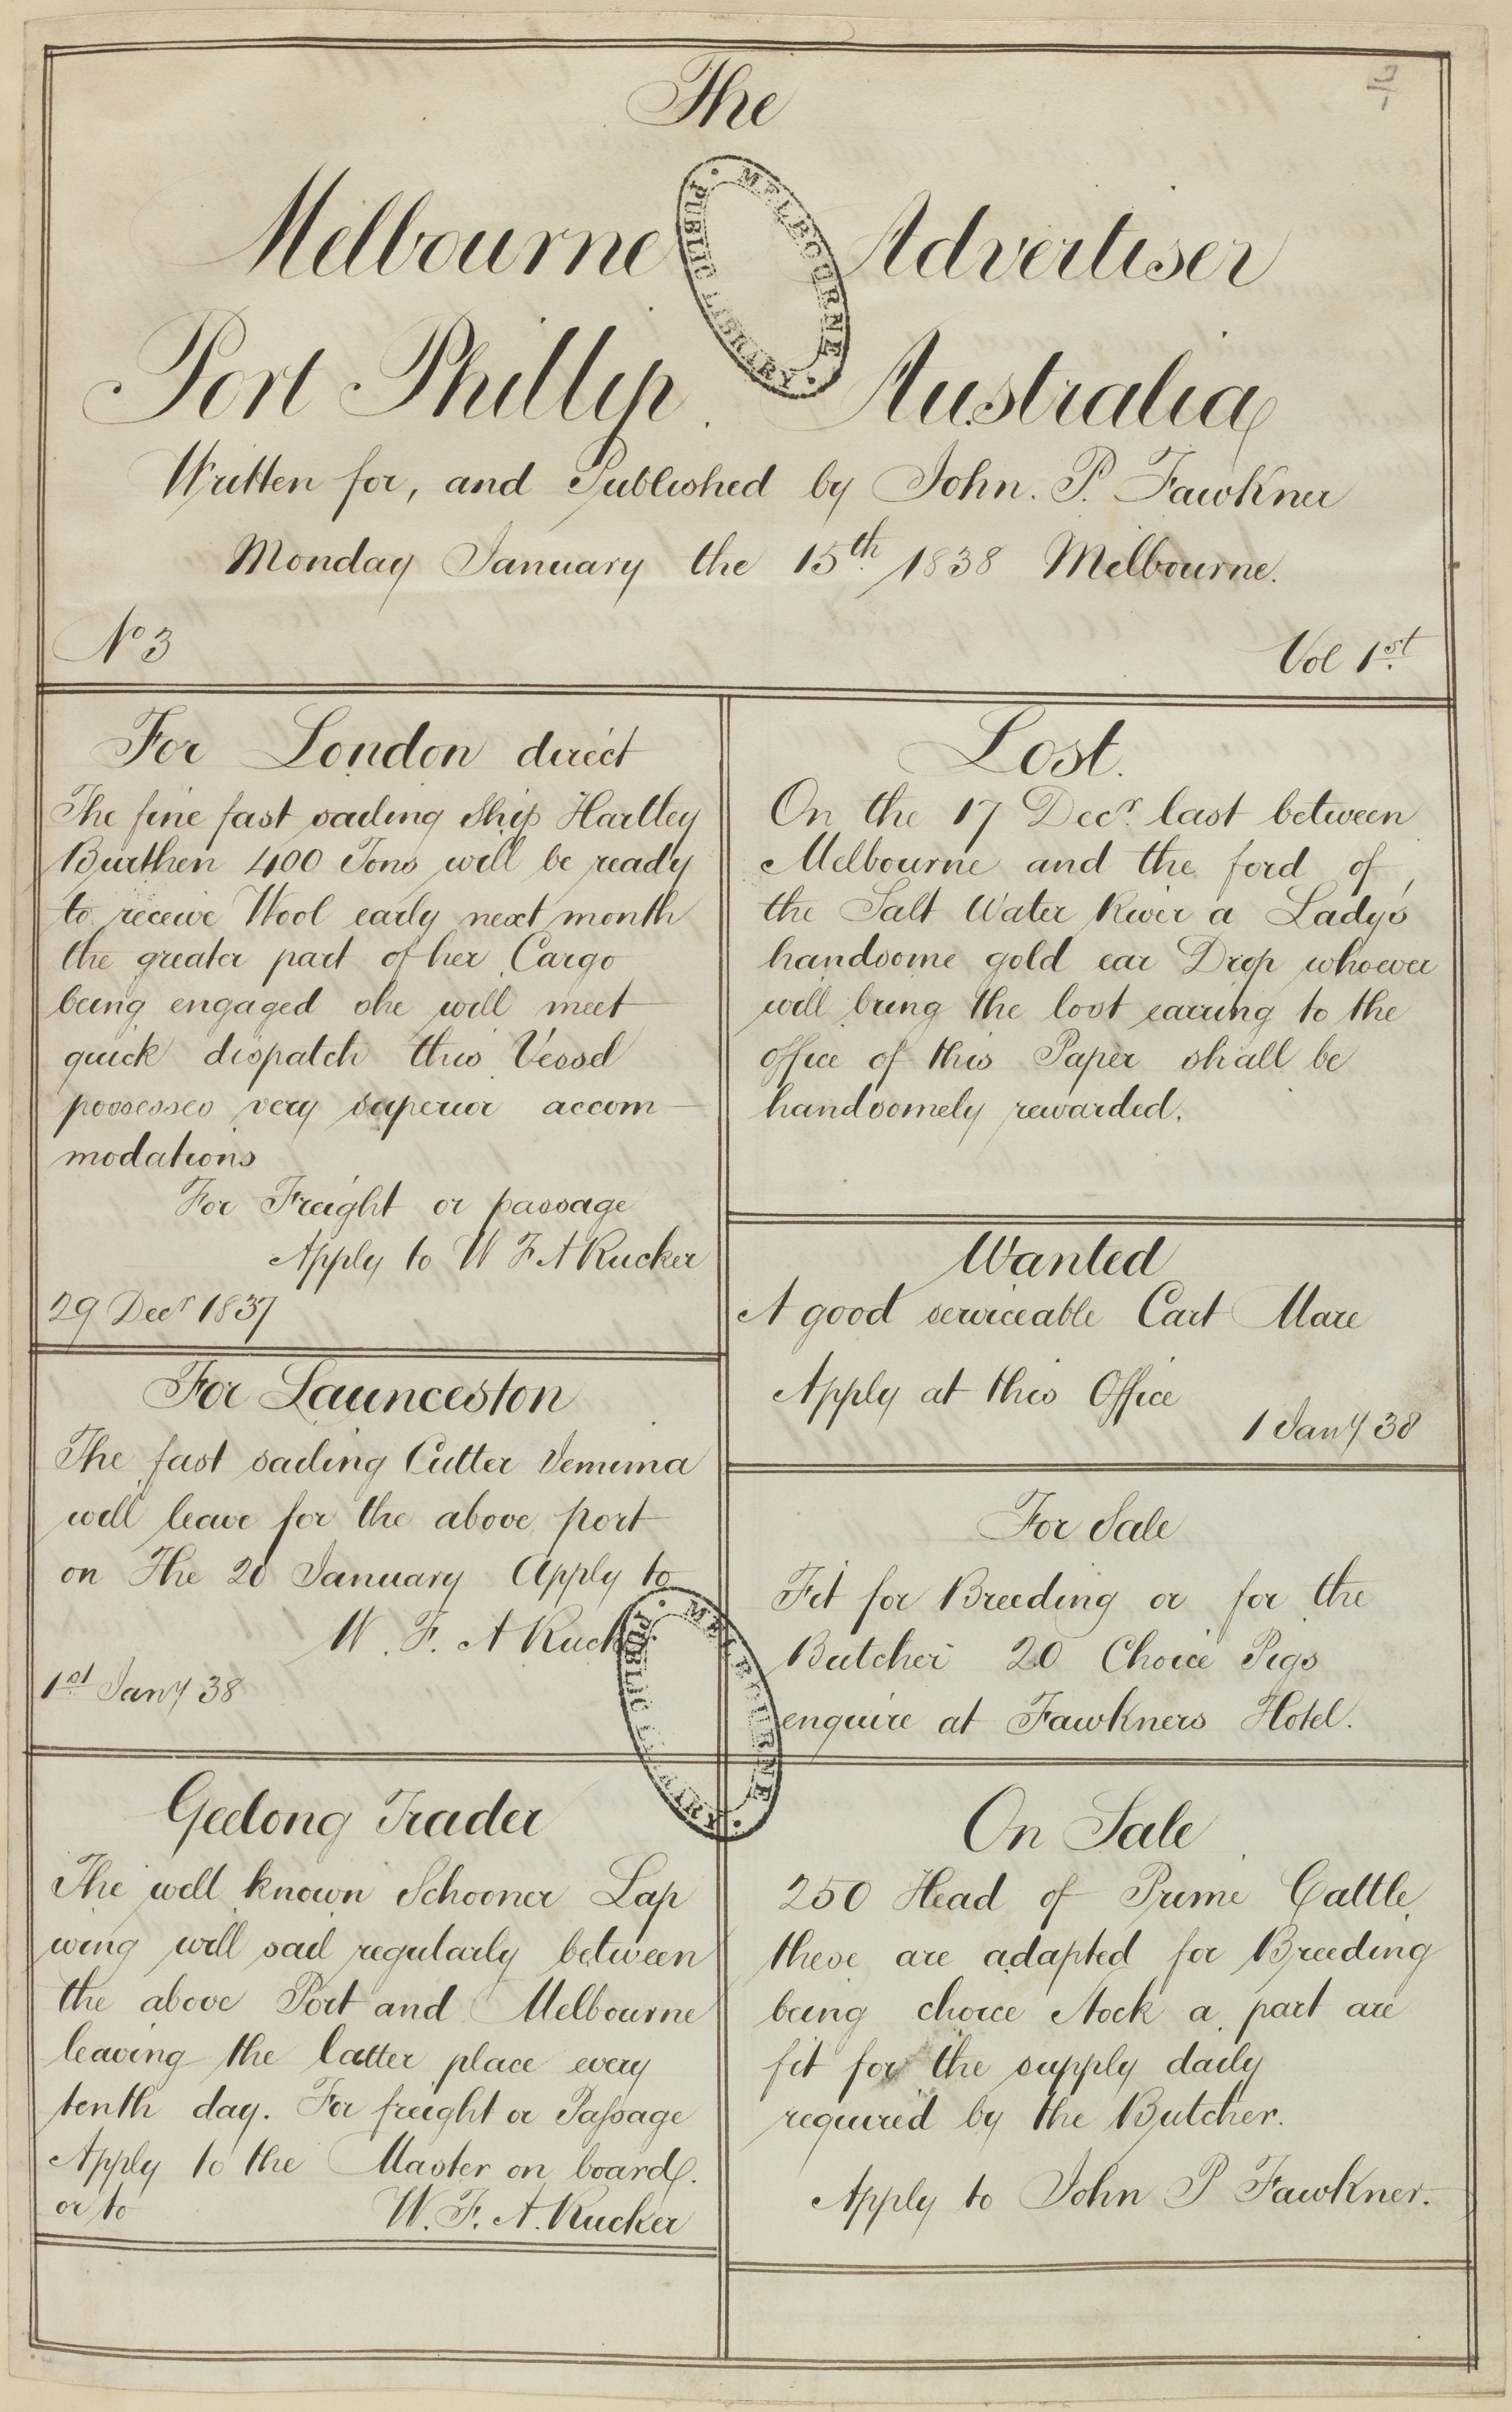 The
Melbourne Advertiser
Port Phillip. Australia
Written for, and Published by John. P. Fawkner
Monday January the 15th 1838 Melbourne.
No 3
Vol 1st
For London direct
The fine fast sailing Ship Hartley
Burthen 400 Tons will be ready
to receive Wool early next month
the greater part of her Cargo
being engaged she will meet
quick dispatch this Vessel
possesses very superior accom-
modations
For Freight or passage
Apply to W F A Rucker
29 Decr 1837
For Launceston
The fast sailing Cutter Jemima
will leave for the above port
on The 20 January Apply to
W. F. A Rucker
1st Jany 38
Geelong Trader
The well known Schooner Lap
wing will sail regularly between
the above Port and Melbourne
leaving the latter place every
tenth day. For freight or Passage
Apply to the Master on board.
or to W. F. A. Rucker
Lost.
On the 17 Decr. last between
Melbourne and the ford of
the Salt Water River a Lady's
handsome gold ear Drop whoever
will bring the lost earring to the
office of this Paper shall be
handsomely rewarded.
Wanted
A good serviceable Cart Mare
Apply at this Office
1 Jany 38
For Sale
Fit for Breeding or for the
Butcher 20 Choice Pigs
enquire at Fawkners Hotel.
On Sale
250 Head of Prime Cattle
these are adapted for Breeding
being choice Stock a part are
fit for the supply daily
required by the Butcher.
Apply to John P Fawkner.
MELBOURNE PUBLIC LIBRARY
MELBOURNE PUBLIC LIBRARY